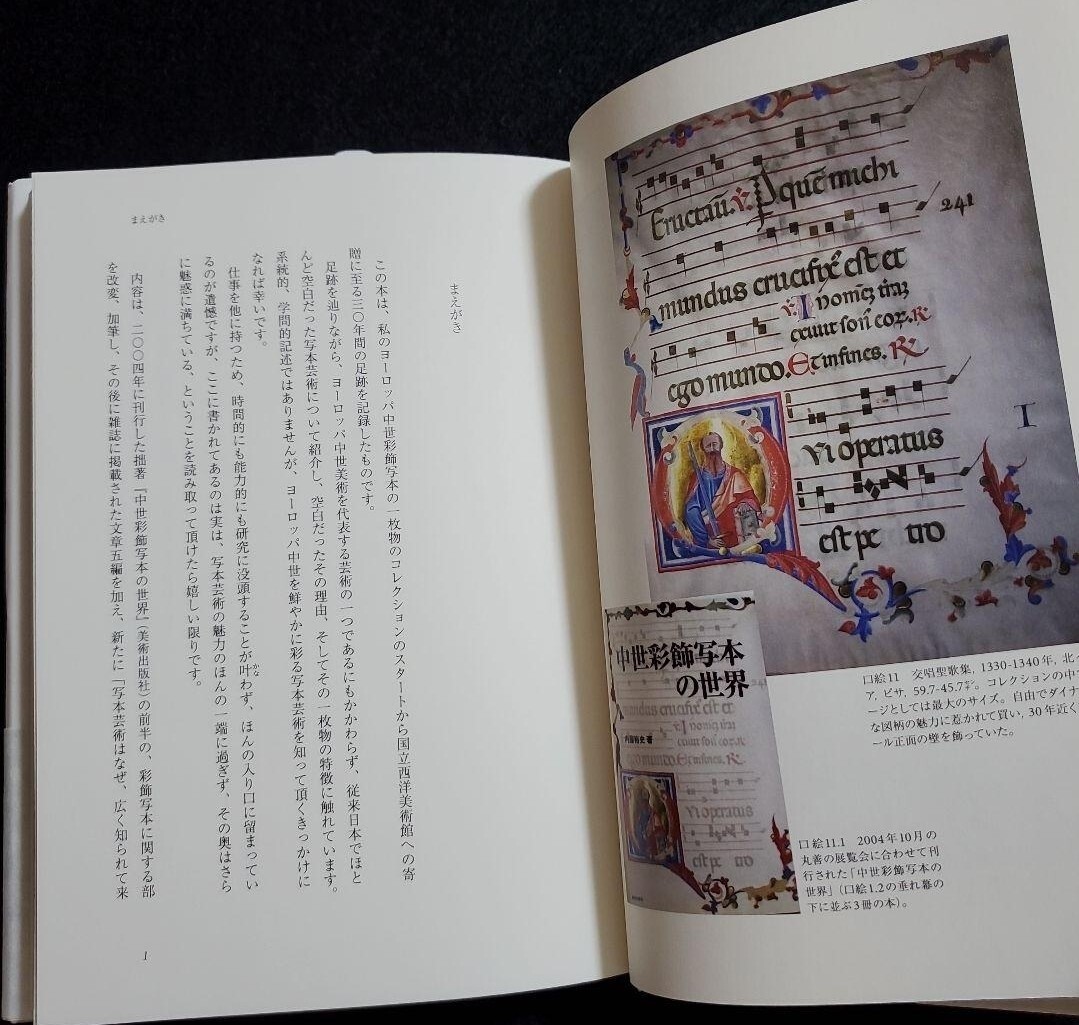 まえがき
まえがき
この本は、私のヨーロッパ中世彩飾写本の一枚物のコレクションのスタートから国立西洋美術館への寄
贈に至る三〇年間の足跡を記録したものです。
足跡を辿りながら、ヨーロッパ中世美術を代表する芸術の一つであるにもかかわらず、従来日本でほと
んど空白だった写本芸術について紹介し、空白だったその理由、そしてその一枚物の特徴に触れています。
系統的、学問的記述ではありませんが、ヨーロッパ中世を鮮やかに彩る写本芸術を知って頂くきっかけに
なれば幸いです。
仕事を他に持つため、時間的にも能力的にも研究に没頭することが叶わず、ほんの入り口に留まってい
るのが遺憾ですが、ここに書かれてあるのは実は、写本芸術の魅力のほんの一端に過ぎず、その奥はさら
に魅惑に満ちている、ということを読み取って頂けたら嬉しい限りです。
内容は、二〇〇四年に刊行した拙著『中世彩飾写本の世界』(美術出版社)の前半の、彩飾写本に関する部
を改変、加筆し、その後に雑誌に掲載された文章五編を加え、新たに「写本芸術はなぜ、広く知られて来
1
Eructau. V. A que michi
241
mundus crucifixe est et
cgo mundo. Et in fines. R
I
Vi operatus
est pe tro
中世彩飾写本
の世界
口絵11 交唱聖歌集, 1330-1340年, 北
ア, ピサ, 59.7-45.7㌢。コレクションの中
ージとしては最大のサイズ。自由でダイナ
な図柄の魅力に惹かれて買い, 30年近く
ール正面の壁を飾っていた。
口絵11.1 2004年10月の
丸善の展覧会に合わせて刊
行された「中世彩飾写本の
世界」(口絵1.2の垂れ幕の
下に並ぶ3冊の本)。